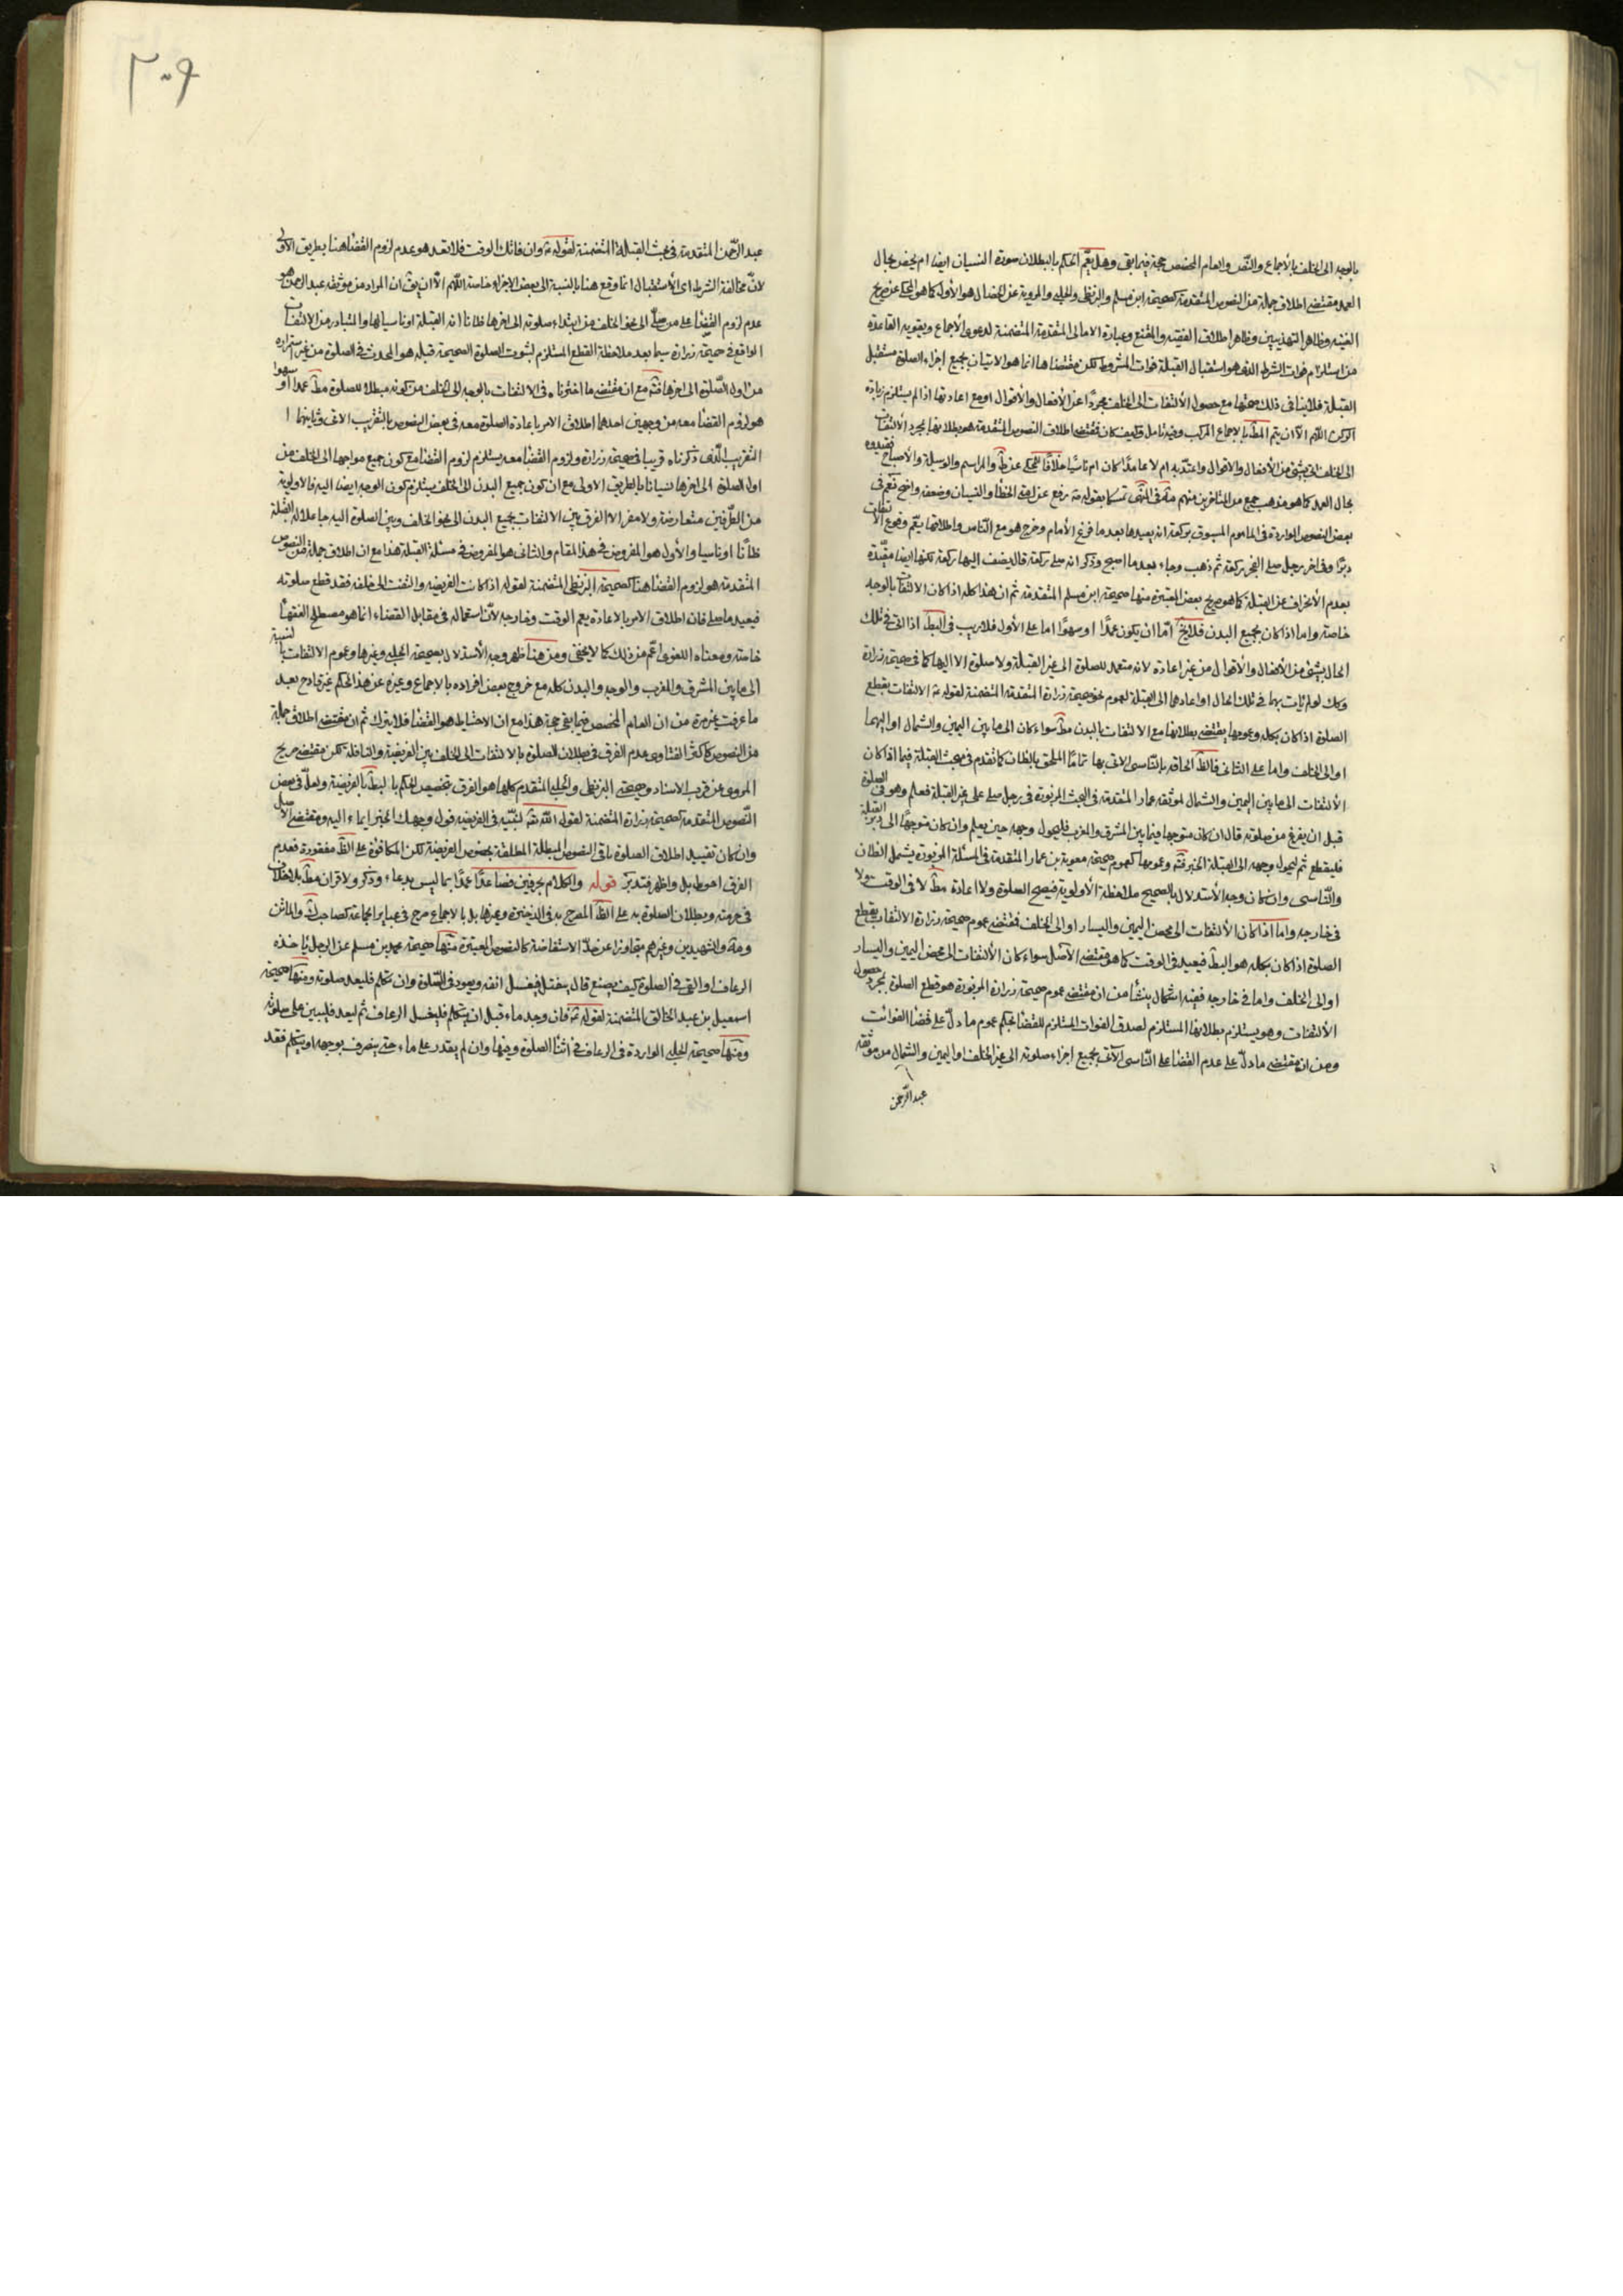 بالوجه الى الخلف بالاجماع والنص والعام المخصص حجة فيما بقى وهل يعم الحكم بالبطلان صورة النسيان ايضا ام يخص بحال
العمد مقتضى اطلاق جملة من النصوص المتقدمة كصحيحة ابن مسلم والبزنطى والحلبى والمروية عن الخصال هو الأول كما هو المحكى عن صريح
الغنيه وظاهر التهذيبين وظاهر اطلاق الفقيه والمقنع وعبارة الامالى المتقدمة المتضمنة لدعوى الأجماع ويقويه القاعدة
من استلزام فوات الشرط الذى هو استقبال القبلة فوات المشروط لكن مقتضاها انما هو الاتيان بجميع اجزاء الصلوة مستقبل
القبلة فلا ينافى ذلك صحتها مع حصول الألتفات الى الخلف مجردًا عن الأفعال والأقوال او مع اعادتها اذا لم يستلزم زيادة
الركن اللهم الّا ان يتم المط بالاجماع المركب وفيه تامل وكيف كان فمقتضى اطلاق النصوص المتقدمة هو بطلانها بمجرد الألتفات
الى الخلف اتى بشئ من الأفعال والاقوال واعتد به ام لا عامدًا كان ام ناسيًا خلافًا للمحكى عن ط والمراسم والوسيلة والاصباح فقيدوه
بحال العمد كما هو مذهب جمع من المتاخرين منهم فى المنتهى تمسكا بقوله ص رفع عن امتى الخطأ والنسيان وضعفه واضح نعم فى
بعض النصوص الواردة فى الماموم المسبوق بركعة انه يعيدها بعد ما فرغ الأمام وخرج هو مع الناس واطلاقها يعم وقوع الالتفات
دبرًا وفى اخر رجل صلى الفجر ركعة ثم ذهب وجاء بعد ما اصبح وذكر انه صلى ركعة قال يضيف اليها ركعة لكنها ايضا مقيّدة
بعدم الأنحراف عن القبلة كما هو صريح بعض المعتبرة منها صحيحة ابن مسلم المتقدمة ثم ان هذا كله اذا كان الالتفات بالوجه
خاصة واما اذا كان بجميع البدن فلا يخ امّا ان يكون عمدًا او سهوًا اما على الأول فلا ريب فى البط اذا اتى فى تلك
الحال بشئ من الأفعال والأقوال من غير اعادة لانه متعمد للصلوة الى غير القبلة ولا صلوة الا اليها كما فى صحيحة زرارة
وكك لو لم يات بها فى تلك الحال او اعادها الى القبلة لعموم نحو صحيحة زرارة المتقدمة المتضمنة لقوله ع الالتفات يقطع
الصلوة اذا كان بكله وعمومها يقتضى بطلانها مع الالتفات بالبدن مط سواء كان الى ما بين اليمين والشمال او اليهما
او الى الخلف واما على الثانى فالظ الحاقه بالناسى الاتى بها تمامًا الملحق بالظان كما تقدم فى مبحث القبلة فيما اذا كان
الألتفات الى ما بين اليمين والشمال لموثقه عمار المتقدمة فى البحث المزبورة فى رجل صلى على غير القبلة فعلم وهو فى الصلوة
قبل ان يفرغ من صلوته قال ان كان متوجها فيما بين المشرق والمغرب فليحول وجهه حين يعلم وان كان متوجهًا الى دبر القبلة
فليقطع ثم ليحول وجهه الى القبلة الخبر وعمومها كعموم صحيحة معوية بن عمار المتقدمة فى المسئلة المزبورة يشمل الظان
والناسى وان كان وجه الأستدلال بالصحيح ملاحظة الأولوية فيصح الصلوة ولا اعادة مط لا فى الوقت ولا
فى خارجه واما اذا كان الألتفات الى محض اليمين واليسار او الى الخلف فمقتضى عموم صحيحة زرارة الالتفات يقطع
الصلوة اذا كان بكله هو البط فيعيد فى الوقت كما هو مقتضى الأصل سواء كان الألتفات الى محض اليمين واليسار
او الى الخلف واما فى خارجه ففيه اشكال ينشأ من ان مقتضى عموم صحيحة زرارة المزبورة هو قطع الصلوة بمجرد حصول
الألتفات وهو يستلزم بطلانها المستلزم لصدق الفوات المستلزم للقضا بحكم عموم ما دلّ على قضا الفوائت
ومن ان مقتضى ما دلّ على عدم القضا على الناسى الآتى بجميع اجزاء صلوته الى غير الخلف او اليمين والشمال من موثقه
عبد الرحمن
٢٠٩
عبد الرحمن المتقدمة فى مبحث القبلة المتضمنة لقوله ع وان فاتك الوقت فلا تعد هو عدم لزوم القضا هنا بطريق الأولى
لانّ مخالفة الشرط اى الأستقبال انما وقع هنا بالنسبة الى بعض الاجزاء خاصة اللهم الّا ان يق ان المراد من موثقه عبد الرحمن هو
عدم لزوم القضا على من صلّى الى نحو الخلف من ابتداء صلوته الى اخرها ظانا انه القبلة او ناسيا لها والمتبادر من الالتفات
الواقع فى صحيحة زرارة سيما بعد ملاحظة القطع المستلزم لثبوت الصلوة الصحيحة قبله هو الحدث فى الصلوة من غير استمراره
من اول الصّلوة الى اخرها مع ان مقتضى ما اخترناه فى الالتفات بالوجه الى الخلف من كونه مبطلا للصلوة مط عمدًا او سهوا
هو لزوم القضا معه من وجهين احدهما اطلاق الامر باعادة الصلوة معه فى بعض النصوص بالتقريب الاتى وثانيهما ا
التقريب الّذى ذكرناه قريبا فى صحيحة زرارة ولزوم القضا معه يستلزم لزوم القضا مع كون جميع مواجها الى الخلف من
اول الصلوة الى اخرها نسيانا بالطريق الاولى مع ان كون جميع البدن الى الخلف يستلزم كون الوجه ايضا اليه فالاولوية
من الطّرفين متعارضة ولا مفر الا الفرق بين الالتفات بجميع البدن الى نحو الخلف وبين الصلوة اليه جاعلا له القبلة
ظانًا او ناسيا والأول هو المفروض فى هذا المقام والثانى هو المفروض فى مسئلة القبلة هذا مع ان اطلاق جملة من النصوص
المتقدمة هو لزوم القضا هنا كصحيحة البزنطى المتضمنة لقوله اذا كانت الفريضه والتفت الى خلفه فقد قطع صلوته
فيعيد ما صلى فان اطلاق الامر بالاعادة يعم الوقت وخارجه لأنّ استعماله فى مقابل القضاء انما هو مصطلح الفقهأ
خاصة ومعناه اللغوى اعّم من ذلك كما لا يخفى ومن هنا ظهر وجه الأستدلال بصحيحة الحلبى وغيرها وعموم الالتفات بالنسبة
الى ما بين المشرق والمغرب والوجه والبدن كله مع خروج بعض افراده بالاجماع وغيره عن هذا الحكم غير قادح بعد
ما عرفت غير مرة من ان العام المخصص فيما بقى حجة هذا مع ان الاحتياط هو القضا فلا يترك ثم ان مقتضى اطلاق جملة
من النصوص كاكثر الفتاوى عدم الفرق فى بطلان الصلوة بالالتفات الى الخلف بين الفريضة والنافلة لكن مقتضى صريح
المروى عن قرب الاسناد وصحيحتى البزنطى والحلبى المتقدم كلها هو الفرق بتخصيص الحكم بالبط بالفريضة ولعلّ فى بعض
النّصوص المتقدمة كصحيحة زرارة المتضمنة لقوله لنبيّه فى الفريضه فول وجهك الخبر ايماء اليه ومقتضى الأصل
وان كان تقييد اطلاق الصلوة باقى النصوص المبطلة المطلقة بخصوص الفريضة لكن المكافؤة على الظ مفقودة فعدم
الفرق احوط بل واظهر فتدبّر قوله والكلام بحرفين فصاعدًا عمدًا بما ليس بدعاء وذكر ولا قران مط بلا خلاف
فى حرمته وبطلان الصلوة به على الظ المصرح به فى الذخيرة وغيرها بل بالاجماع صرح فى عباير جماعة كصاحب ك والماتن
والشهيدين وغيرهم متجاوزا عن حدّ الاستفاضة كالنصوص المعتبرة منها صحيحة محمد بن مسلم عن الرجل ياخذه
الرعاف او القئ فى الصلوة كيف يصنع قال ينفتل فيغسل انفه ويعود فى الصّلوة وان تكلم فليعد صلوته ومنها صحيحة
اسمعيل بن عبد الخالق المتضمنة لقوله ع فان وجد ماء قبل ان يتكلم فليغسل الرعاف ثم ليعد فليبن على صلوته
ومنها صحيحة الحلبى الواردة فى الرعاف فى اثنا الصلوة وفيها وان لم يقدر على ماء حتى ينصرف بوجهه او يتكلم فقد